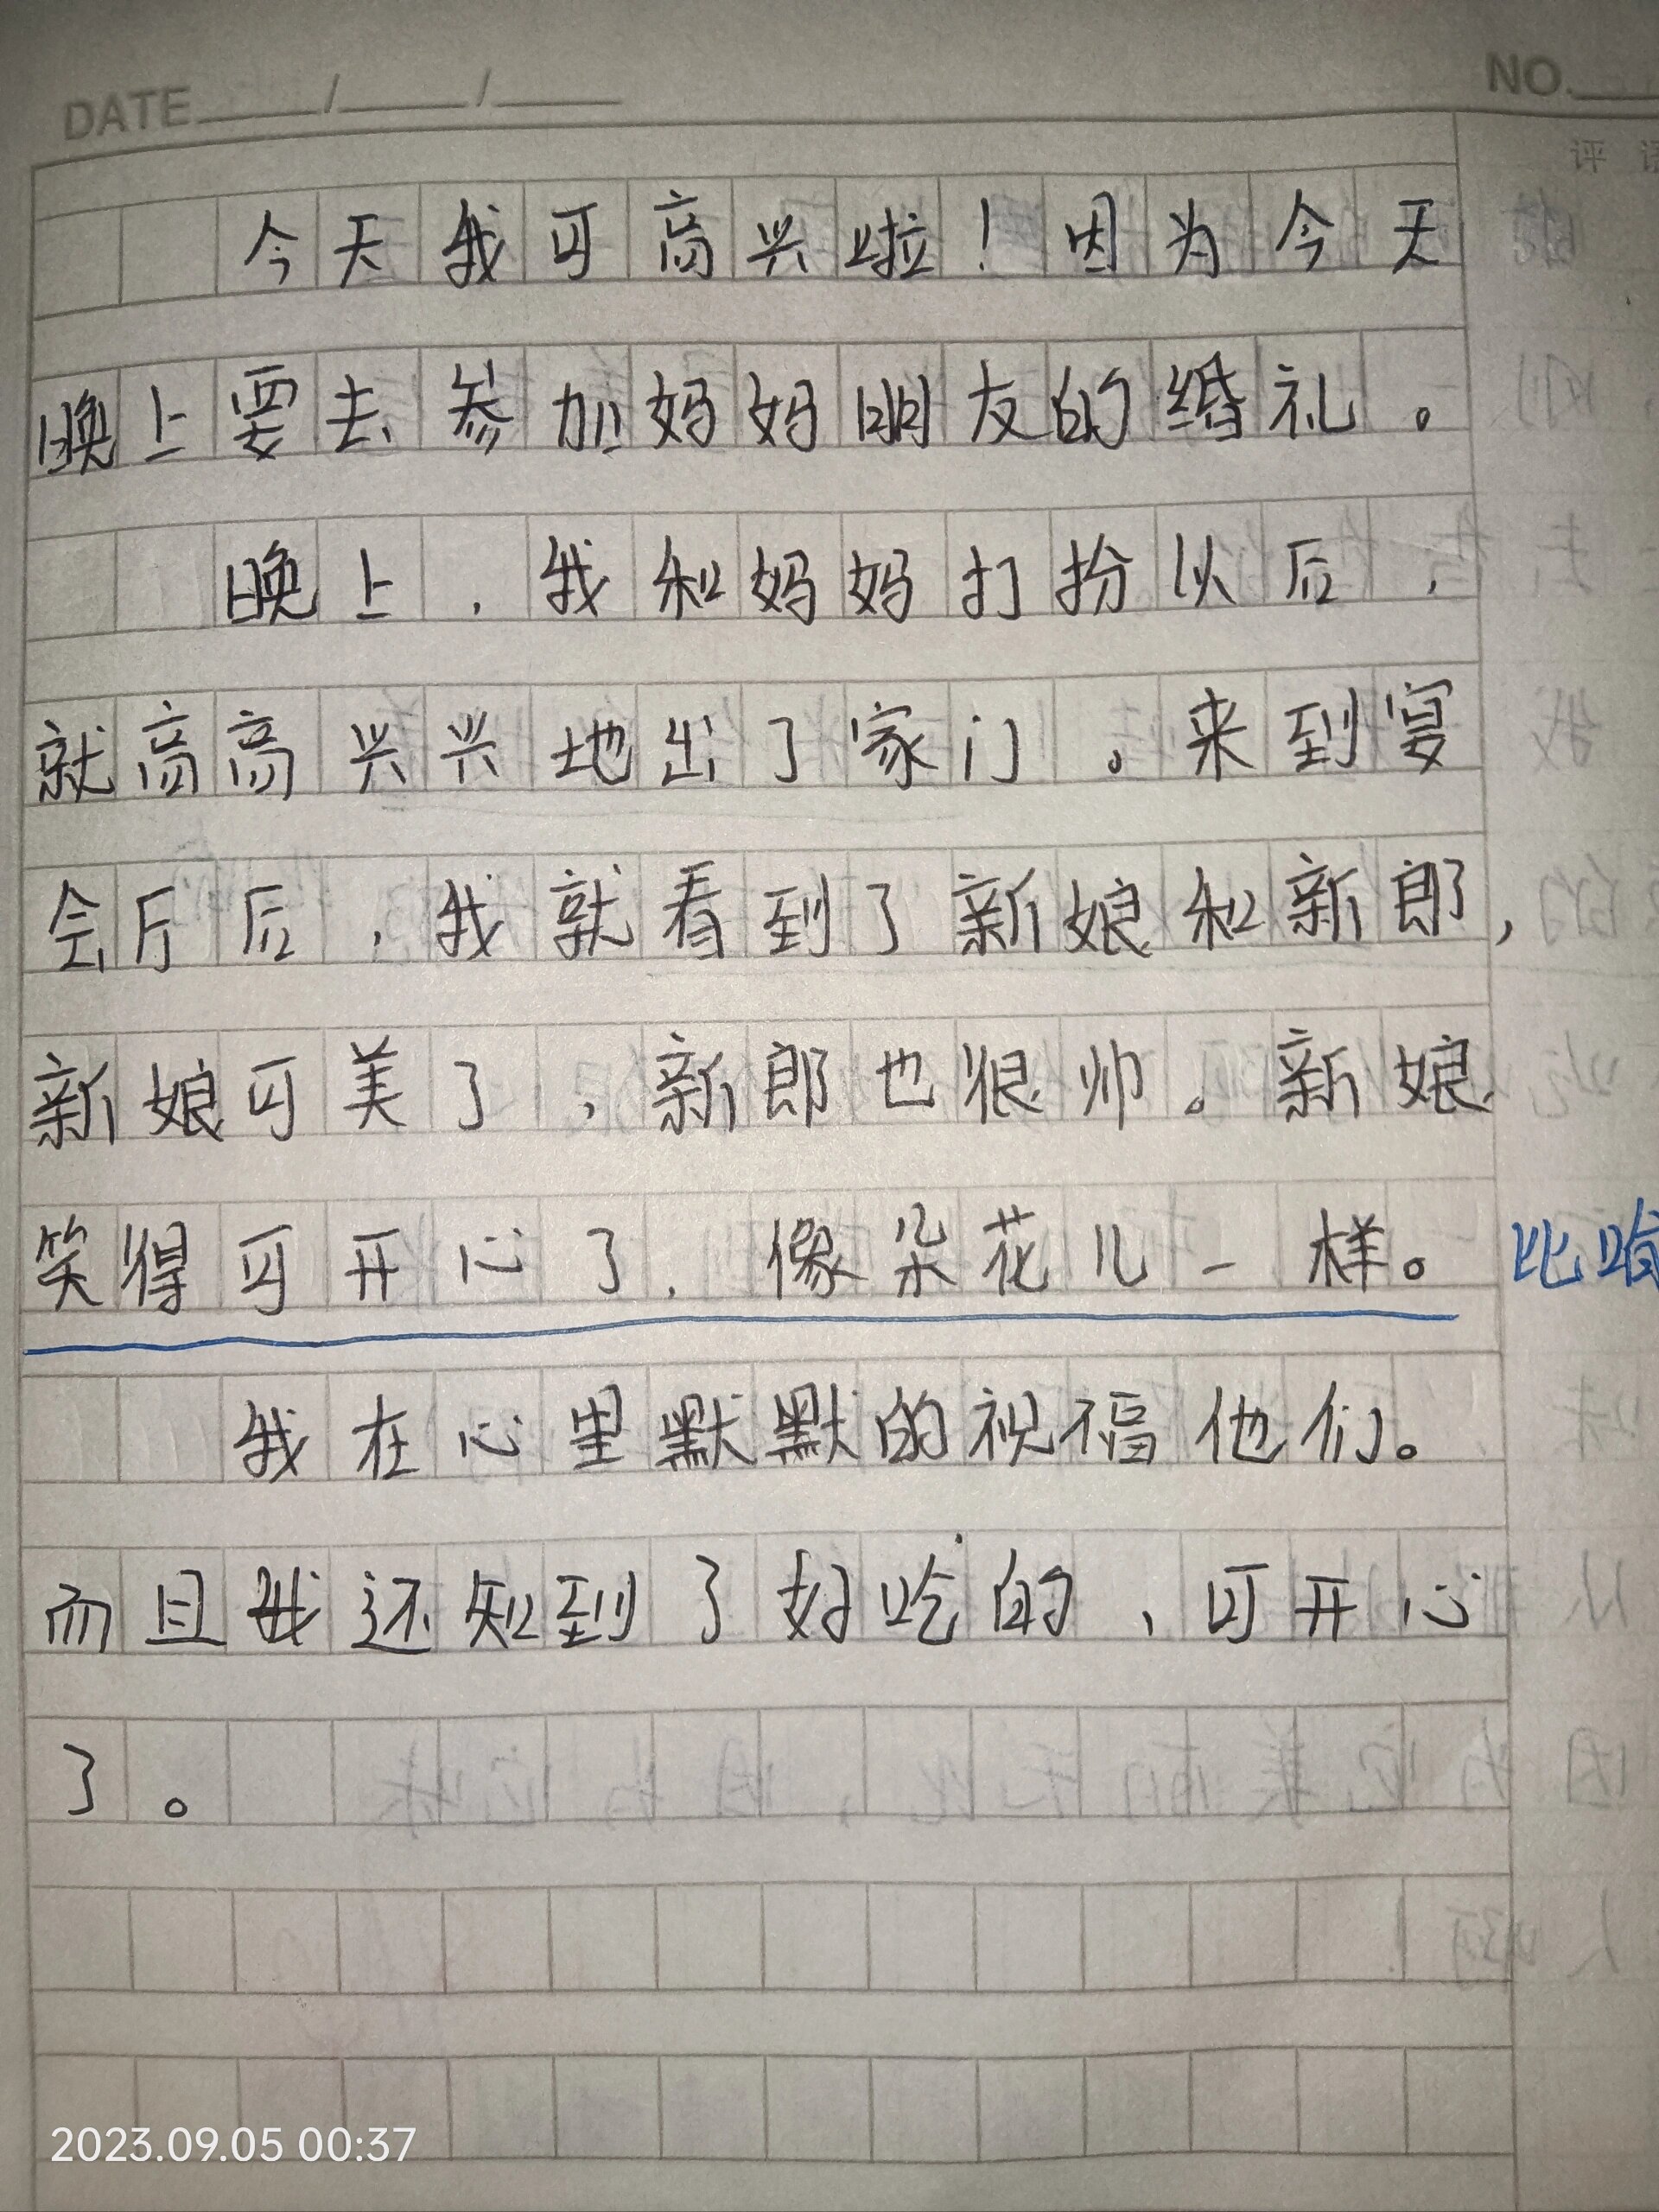 DATE / /
NO.
评
今天我可高兴啦！因为今天
晚上要去参加妈妈朋友的婚礼。
晚上，我和妈妈打扮以后，
就高高兴兴地出了家门。来到宴
会厅后，我就看到了新娘和新郎，
新娘可美了，新郎也很帅。新娘
笑得可开心了，像朵花儿一样。
比喻
我在心里默默的祝福他们。
而且我还知到了好吃的，可开心
了。
2023.09.05 00:37